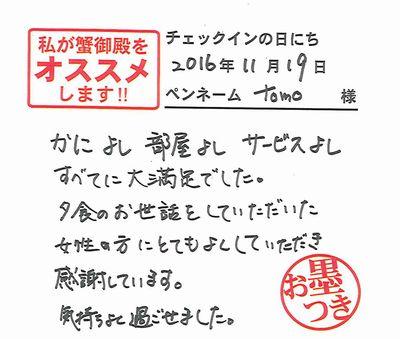 私が蟹御殿を
オススメ
します!!
チェックインの日にち
2016年11月19日
ペンネーム tomo 様
かによし 部屋よし サービスよし
すべてに大満足でした。
夕食のお世話をしていただいた
女性の方にとてもよくしていただき
感謝しています。
気持ちよく過ごせました。
お墨つき